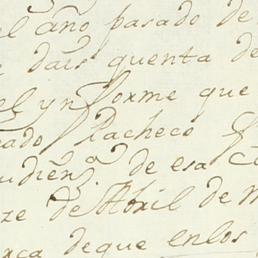 el año pasado de
dais quenta de
el ynforme que
Pacheco
udien.ª de esa
ze de Abril de
deque enlos